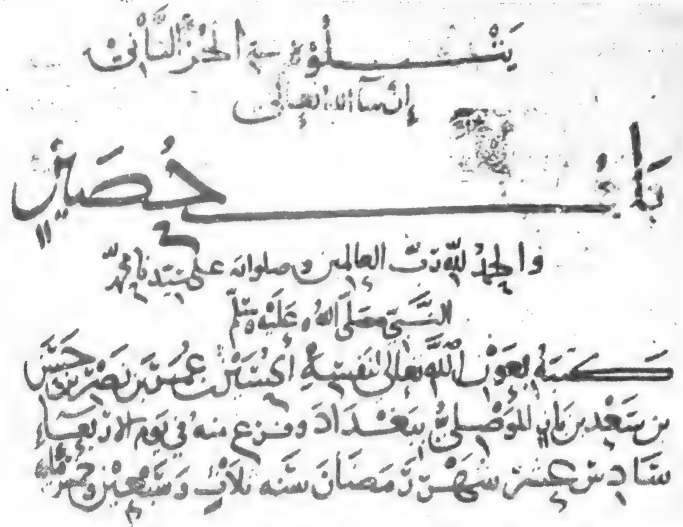 يتلوه في الجزء الثاني
إن شاء الله تعالى
باب حصين
والحمد لله رب العالمين وصلواته على سيدنا محمد
النبي صلى الله عليه وسلم
كتبه بعون الله تعالى لنفسه الحسين بن عمر بن نصر بن حسن
بن سعد بن باز الموصلي ببغداد وفرغ منه في يوم الاربعاء
سادس عشر شهر رمضان سنه ثلاث وسبعين وخمس مايه